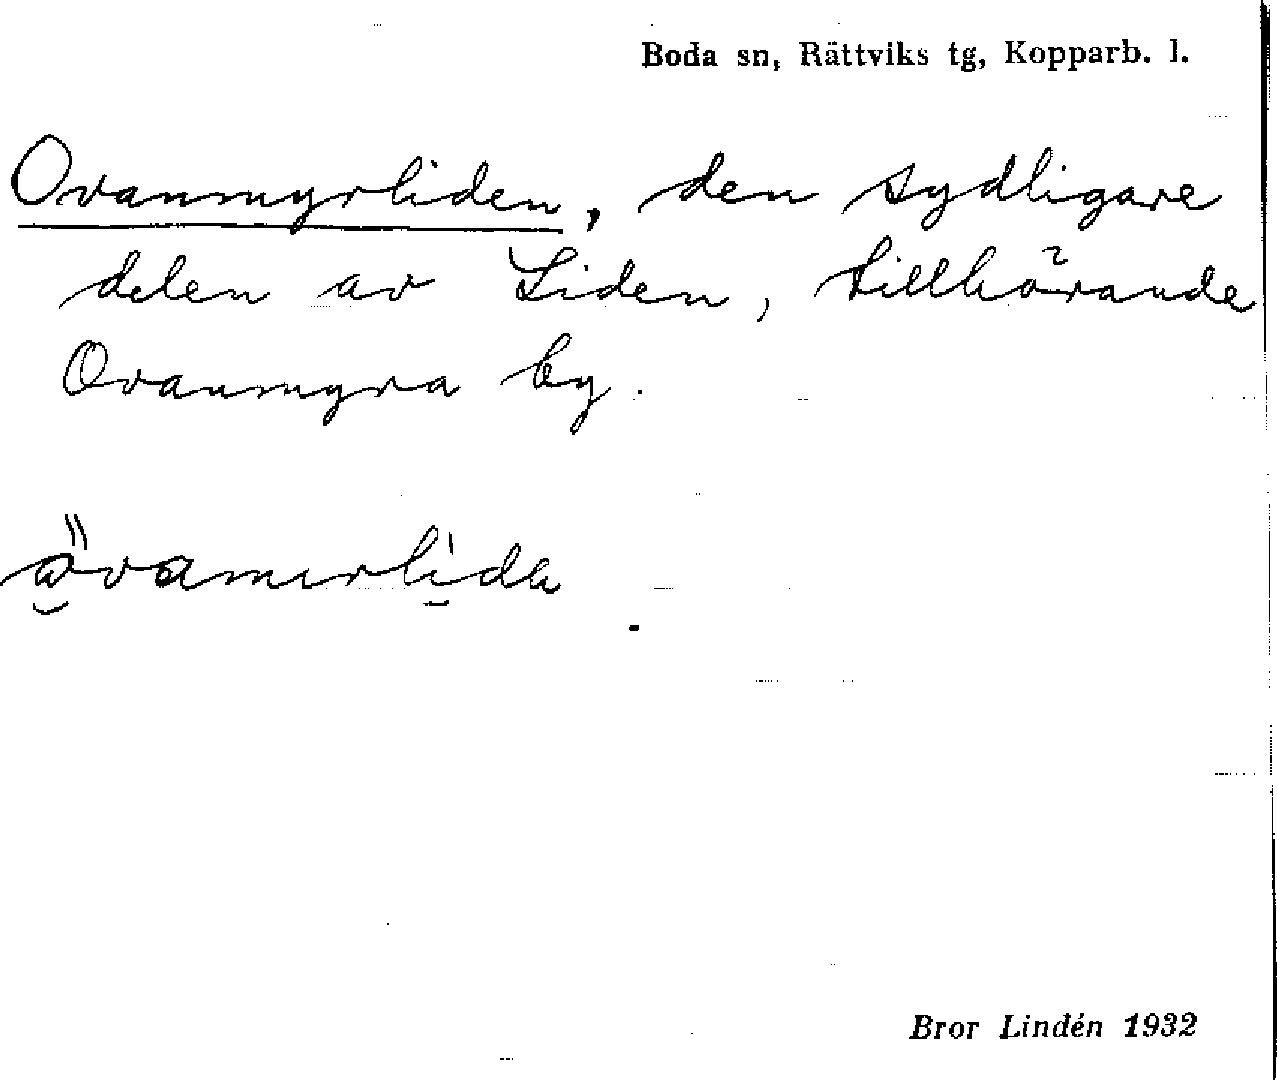 Boda sn, Rättviks tg, Kopparb. l.
Ovanmyrliden, den sydligare
delen av Liden, tillhörande
Ovanmyra by.
Bror Lindén 1932